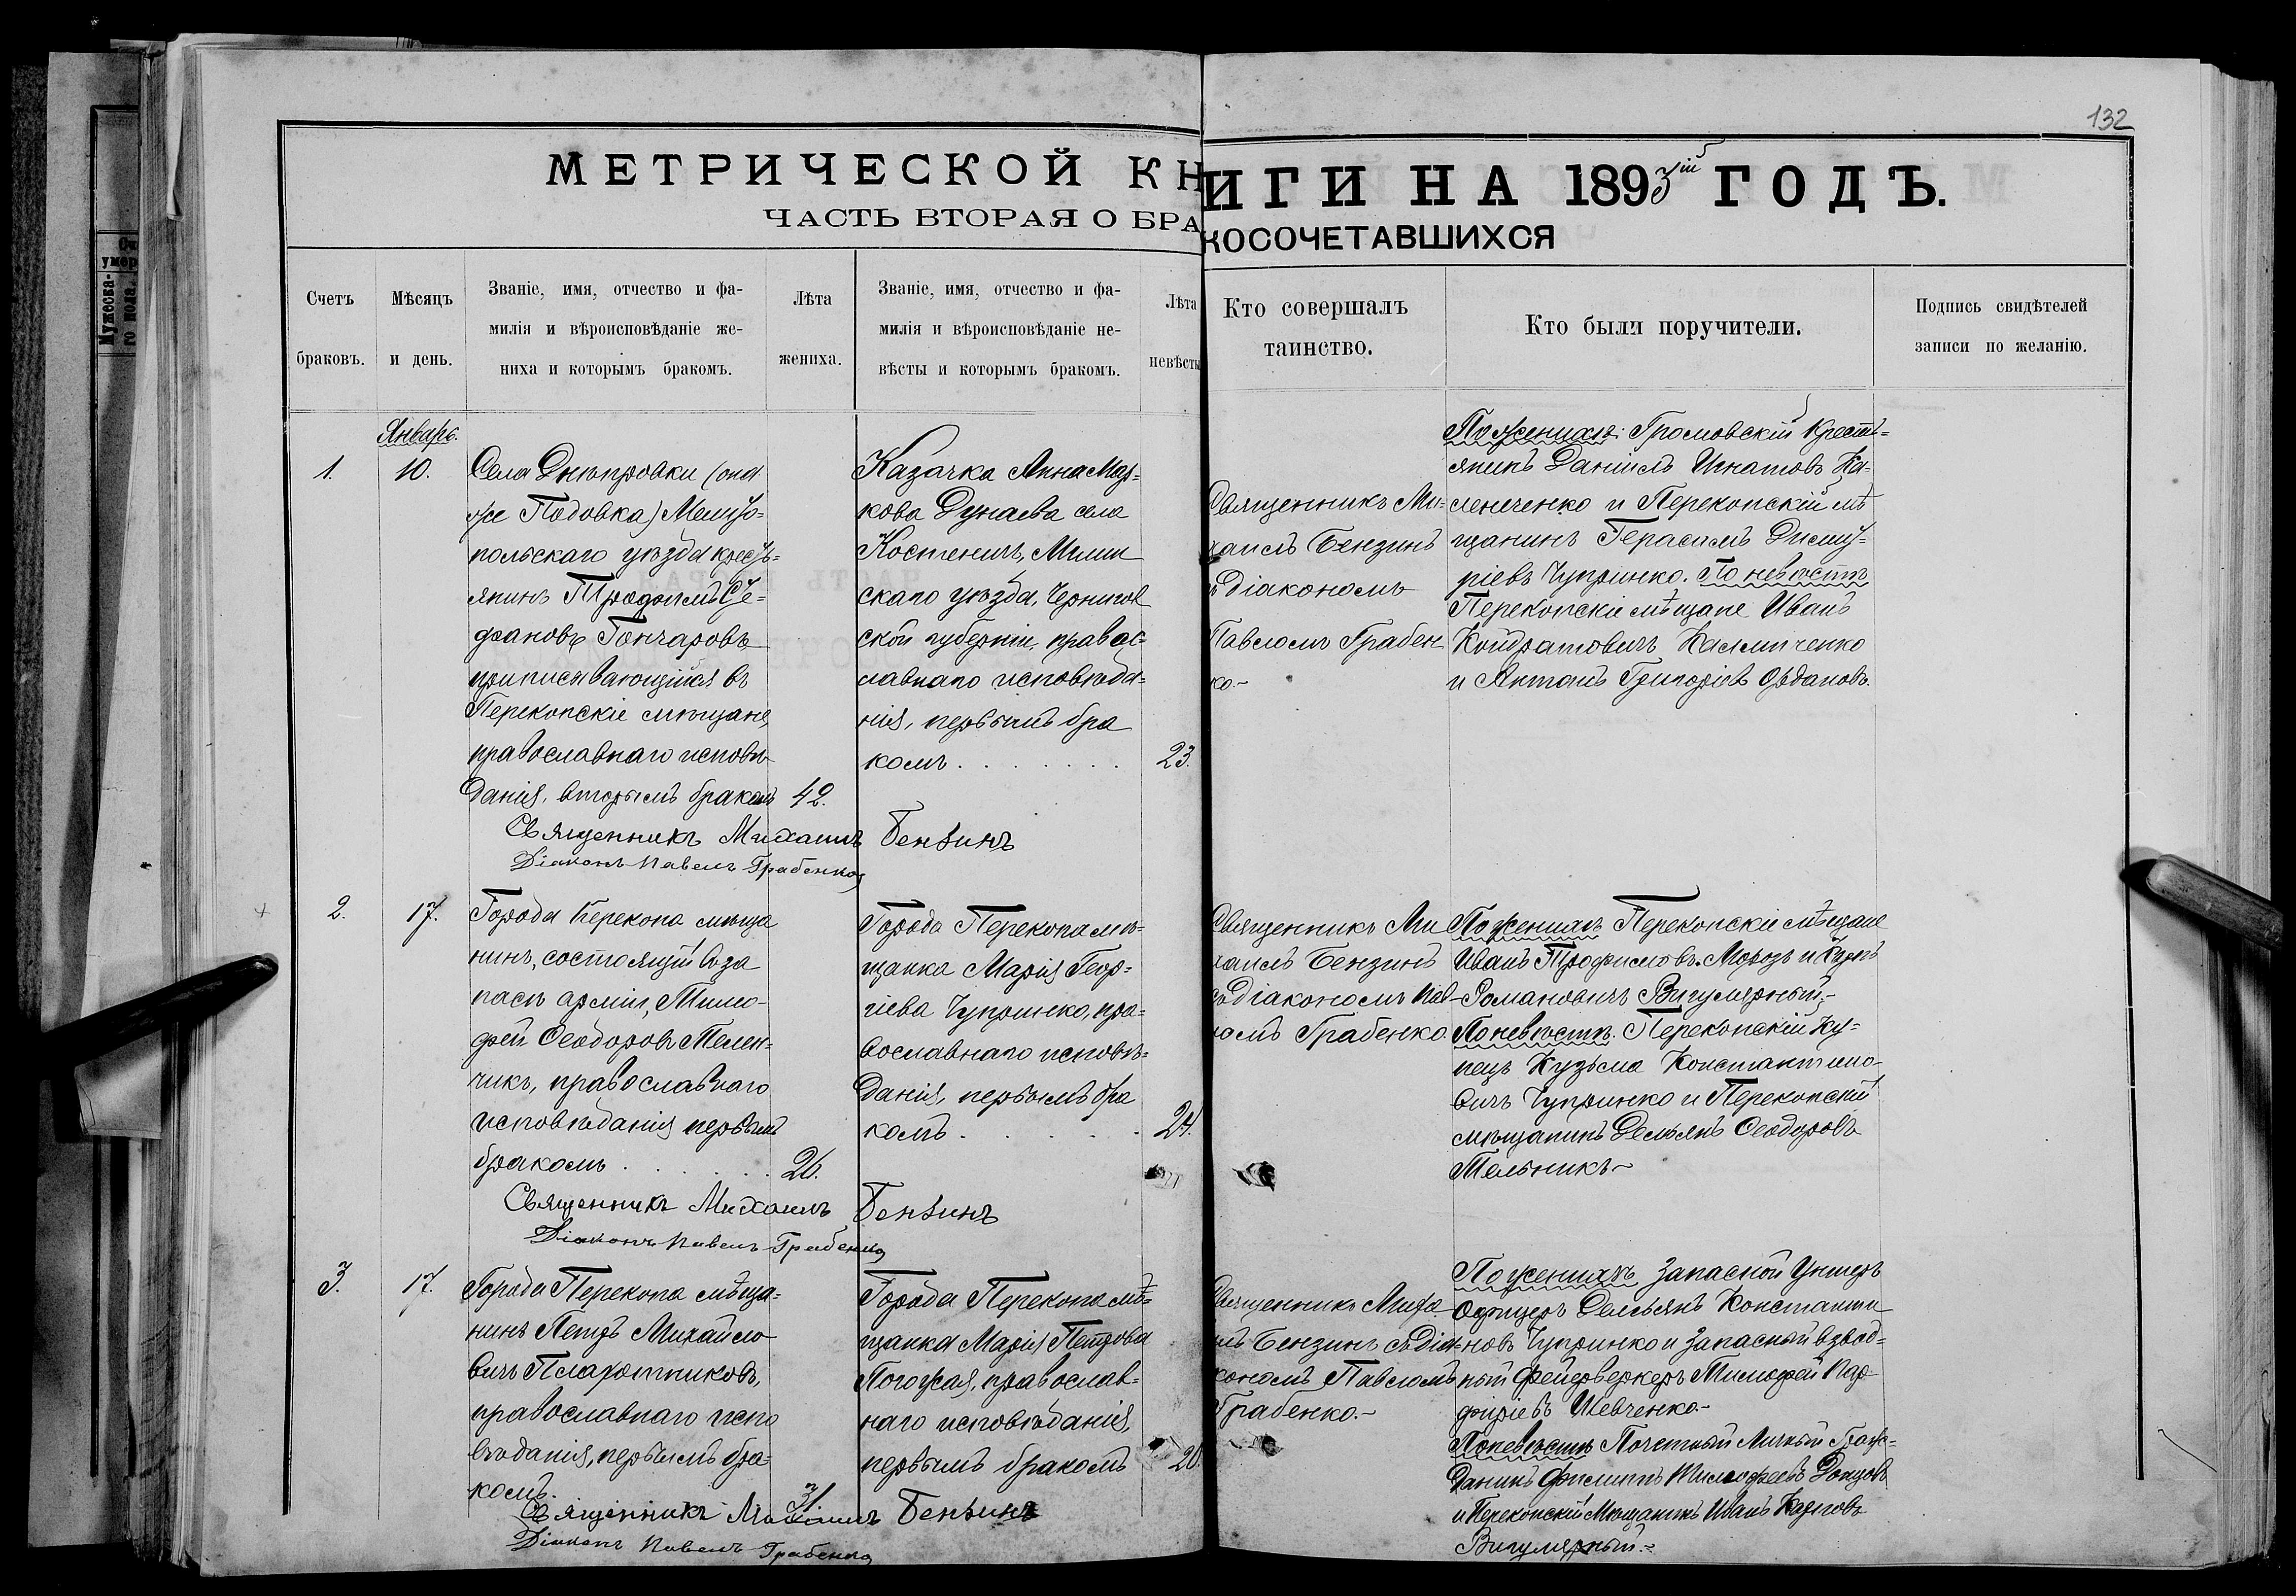 132
МЕТРИЧЕСКОЙ КНИГИ НА 1893ій ГОДЪ.
ЧАСТЬ ВТОРАЯ О БРАКОСОЧЕТАВШИХСЯ
Счетъ браковъ.
Мѣсяцъ и день.
Званіе, имя, отчество и фа-
милія и вѣроисповѣданіе же-
ниха и которымъ бракомъ.
Лѣта жениха.
Званіе, имя, отчество и фа-
милія и вѣроисповѣданіе не-
вѣсты и которымъ бракомъ.
Лѣта невѣсты
Кто совершалъ
таинство.
Кто были поручители.
Подпись свидѣтелей
записи по желанію.
Январь.
1.
10.
Села Днѣпровки (она
же Подовка) Мелито-
польскаго уѣзда кресть-
янинъ Сте-
фановъ Гончаровъ
приписывающійся въ
Перекопскіе мѣщане,
православнаго исповѣ
данія, вторымъ бракомъ
42.
Казачка Анна Мар-
кова Дунаева села
Костеничъ, Мглин
скаго уѣзда, Чернигов
ской губерніи, правос-
лавнаго исповѣда-
нія, первымъ бра
комъ
23.
Священникъ Ми-
хаилъ Бензинъ
съ Діакономъ
Павломъ Грабен
ко.-
По женихѣ: Громовскій крестъ-
янинъ Даніилъ Игнатовъ Ка-
ленченко и Перекопскій мѣ
щанинъ Герасимъ Димит-
ріевъ Чупринко. По невѣстѣ
Перекопскіе мѣщане Иванъ
Кондратовичъ Калиниченко
и Антонъ Григоріевъ
Священникъ Михаилъ Бензинъ
Діаконъ Павелъ Грабенко
2.
17.
Города Перекопа мѣща
нинъ, состоящій въ за
пасѣ арміи, Тимо-
фей Ѳеодоровъ Мелен-
чикъ, православнаго
исповѣданія первымъ
бракомъ
26.
Города Перекопа мѣ-
щанка Марія Геор-
гіева Чупринко, пра-
вославнаго исповѣ-
данія, первымъ бра
комъ
24.
Священникъ Ми
хаилъ Бензинъ
съ Діакономъ Пав-
ломъ Грабенко.
По женихѣ Перекопскіе мѣщане
Иванъ Трофимовъ Морозъ и
Романовичъ Вигулярный.-
По невѣстѣ. Перекопскій ку-
пецъ Кузьма Константино-
вичъ Чупринко и Перекопскій
мѣщанинъ Демьянъ Ѳеодоровъ
Мельникъ-
Священникъ Михаилъ Бензинъ
Діаконъ Павелъ Грабенко
3.
17.
Города Перекопа мѣща-
нинъ Петръ Михайло
вичъ Плахотниковъ,
православнаго испо
вѣданія, первымъ бра-
комъ.
31
Города Перекопа мѣ-
щанка Марія Петрова
Погожая, православ-
наго исповѣданія,
первымъ бракомъ
20
Священникъ Миха
илъ Бензинъ съ Діа-
кономъ Павломъ
Грабенко.-
По женихѣ Запасной Унтеръ
Офицеръ Демьянъ Константи
новъ Чупринко и Запасный взвод-
ный фейерверкеръ Тимофей Пар
фиріевъ Шевченко.-
По невѣстѣ Почетный Личный Граж-
данинъ Филиппъ Тимофеевъ Донцовъ
и Перекопскій Мѣщанинъ Иванъ Карповъ
Вигулярный.-
Священникъ Михаилъ Бензинъ
Діаконъ Павелъ Грабенко